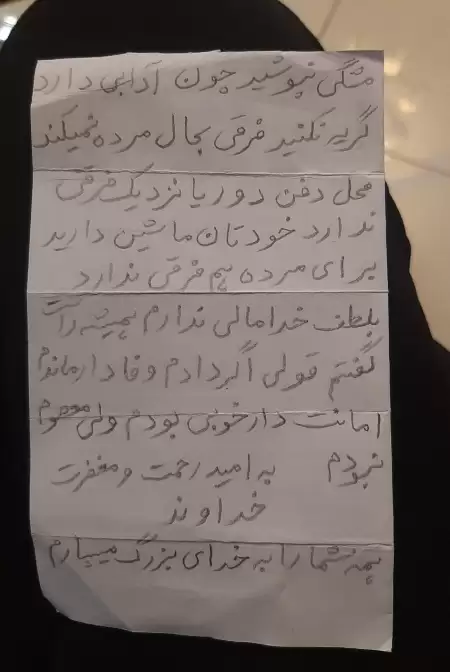 مشکی نپوشید چون آدابی دارد
گریه نکنید فرقی بحال مرده نمیکند
محل دفن دور یا نزدیک فرقی
ندارد خودتان ماشین دارید
برای مرده هم فرقی ندارد
بلطف خدا مالی ندارم همیشه راست
گفتم قولی اگر دادم وفادار ماندم
امانت دار خوبی بودم ولی معصوم
نبودم به امید رحمت و مغفرت
خداوند
همه شما را به خدای بزرگ میسپارم